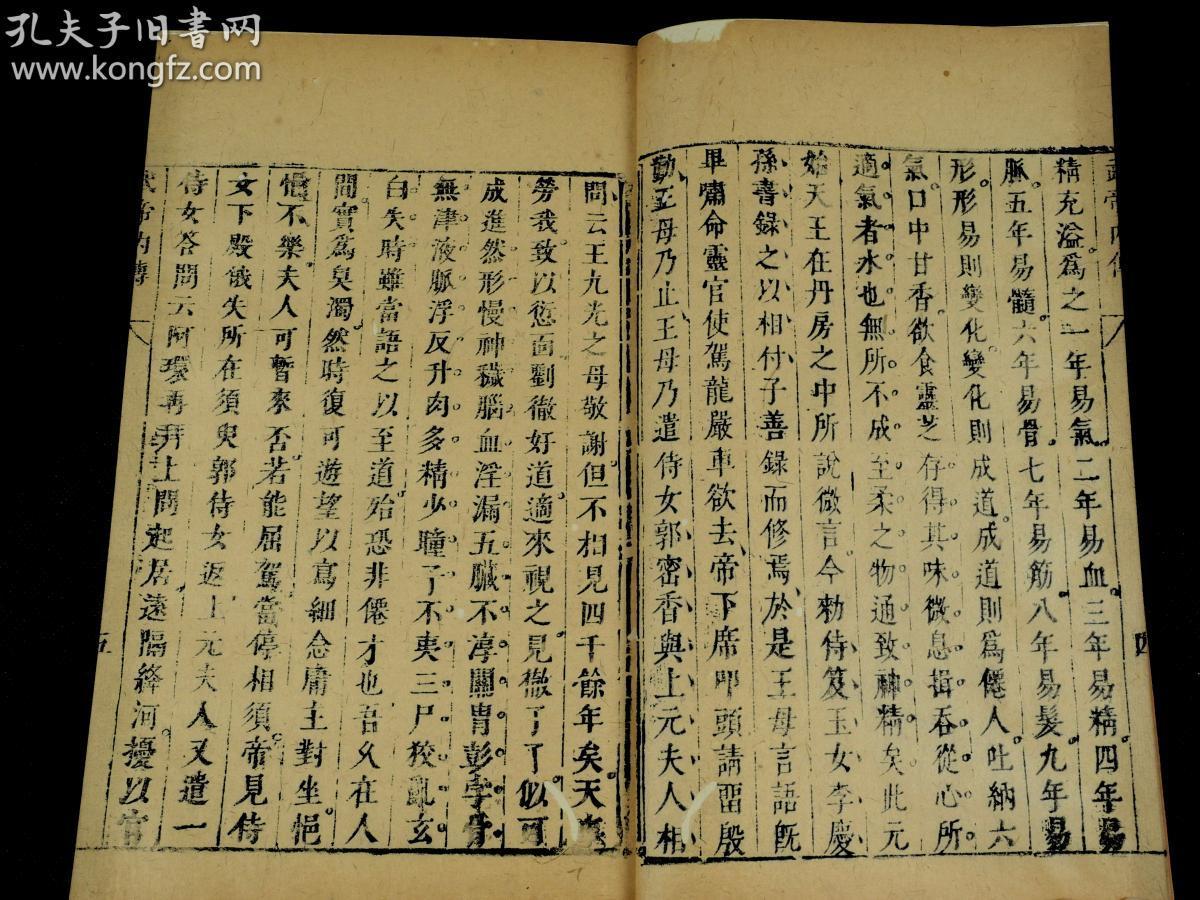 孔夫子旧书网
www.kongfz.com
武帝內傳 八 四
精充溢爲之一年易氣二年易血三年易精四年易
脈五年易髓六年易骨七年易筋八年易髮九年易
形形易則變化變化則成道成道則爲僊人吐納六
氣口中甘香欲食靈芝存得其味微息揖吞從心所
適氣者水也無所不成至柔之物通致神精矣此元
始天王在丹房之中所說微言今勑侍笈玉女李慶
孫書錄之以相付子善錄而修焉於是王母言語旣
畢嘯命靈官使駕龍嚴車欲去帝下席叩頭請畱殷
勤王母乃止王母乃遣侍女郭密香與上元夫人相
問云王九光之母敬謝但不相見四千餘年矣天事
勞我致以愆面劉徹好道適來視之見徹了了似可
成進然形慢神穢腦血淫漏五臟不淳關胃彭孛骨
無津液脈浮反升肉多精少瞳子不夷三尸狡亂玄
白失時雖當語之以至道殆恐非僊才也吾久在人
間實爲臭濁然時復可遊望以寫細念庸主對坐悒
悒不樂夫人可暫來否若能屈駕當停相須帝見侍
女下殿俄失所在須臾郭侍女返上元夫人又遣一
侍女答問云阿環再拜上問起居遠隔絳河擾以官
武帝內傳 八 五